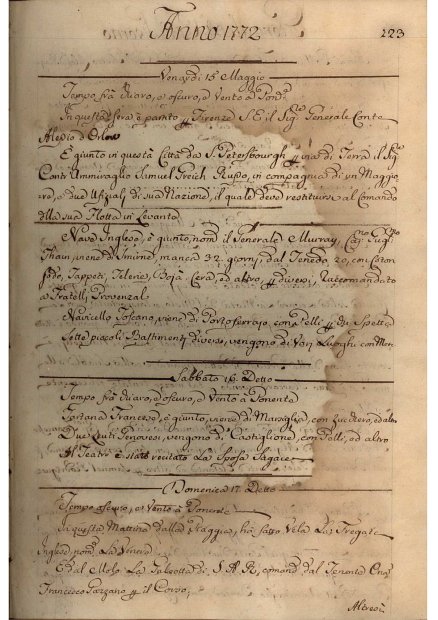 Anno 1772
223
Venerdi 15 Maggio
Tempo frà chiaro, e oscuro, e Vento a
In questa sera è partito Firenze S. E. il Sig.re Generale Conte
Alesio d'Orlow
È giunto in questa Città da S. Petersbourgh via di Terra il Sig.
Contr'Ammiraglio Samuel Greich Russo, in compagnia di un Maggio-
re, e due Ufizial di sua Nazione, il quale deve restituirsi al Comando
della sua Flotta in Levante
Nave Inglese, è giunta, nom. il Generale Murray, Cap.
viene di Smirne, manca 32 giorni, e dal Tenedo 20, con Coton
Tappeti, Telerie, Cera, ed altro, diversi, Raccomandato
a Fratelli Provenzal
Navicello Toscano, viene di Portoferrajo con Pelli
Sette piccoli Bastimenti diversi, vengono di Vari Luoghi con Mer.
Sabbato 16 Detto
Tempo frà chiaro, e oscuro, e Vento a Ponente
Tartana Francese, è giunta, viene di Marsiglia, con Zucchero, ed altro
Due Leuti Genovesi, vengono di Castiglione, con Pelli, ed altro
Al Teatro è stata recitato La Sposa Sagace
Domenica 17 Detto
Tempo oscuro, e Vento a Ponente
In questa Mattina dalla Spiaggia, ha fatto Vela La Fregata
Inglese nom. La Venere
E dal Molo La Galeotta di S. A. R., comand. dal Tenente Cav.
Francesco il Corso;
Altresì